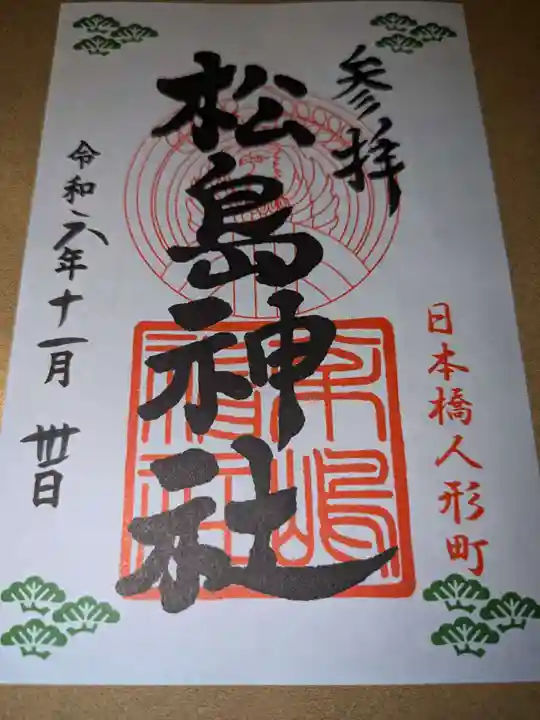 参拝
日本橋人形町
松島神社
令和六年十一月 卅日